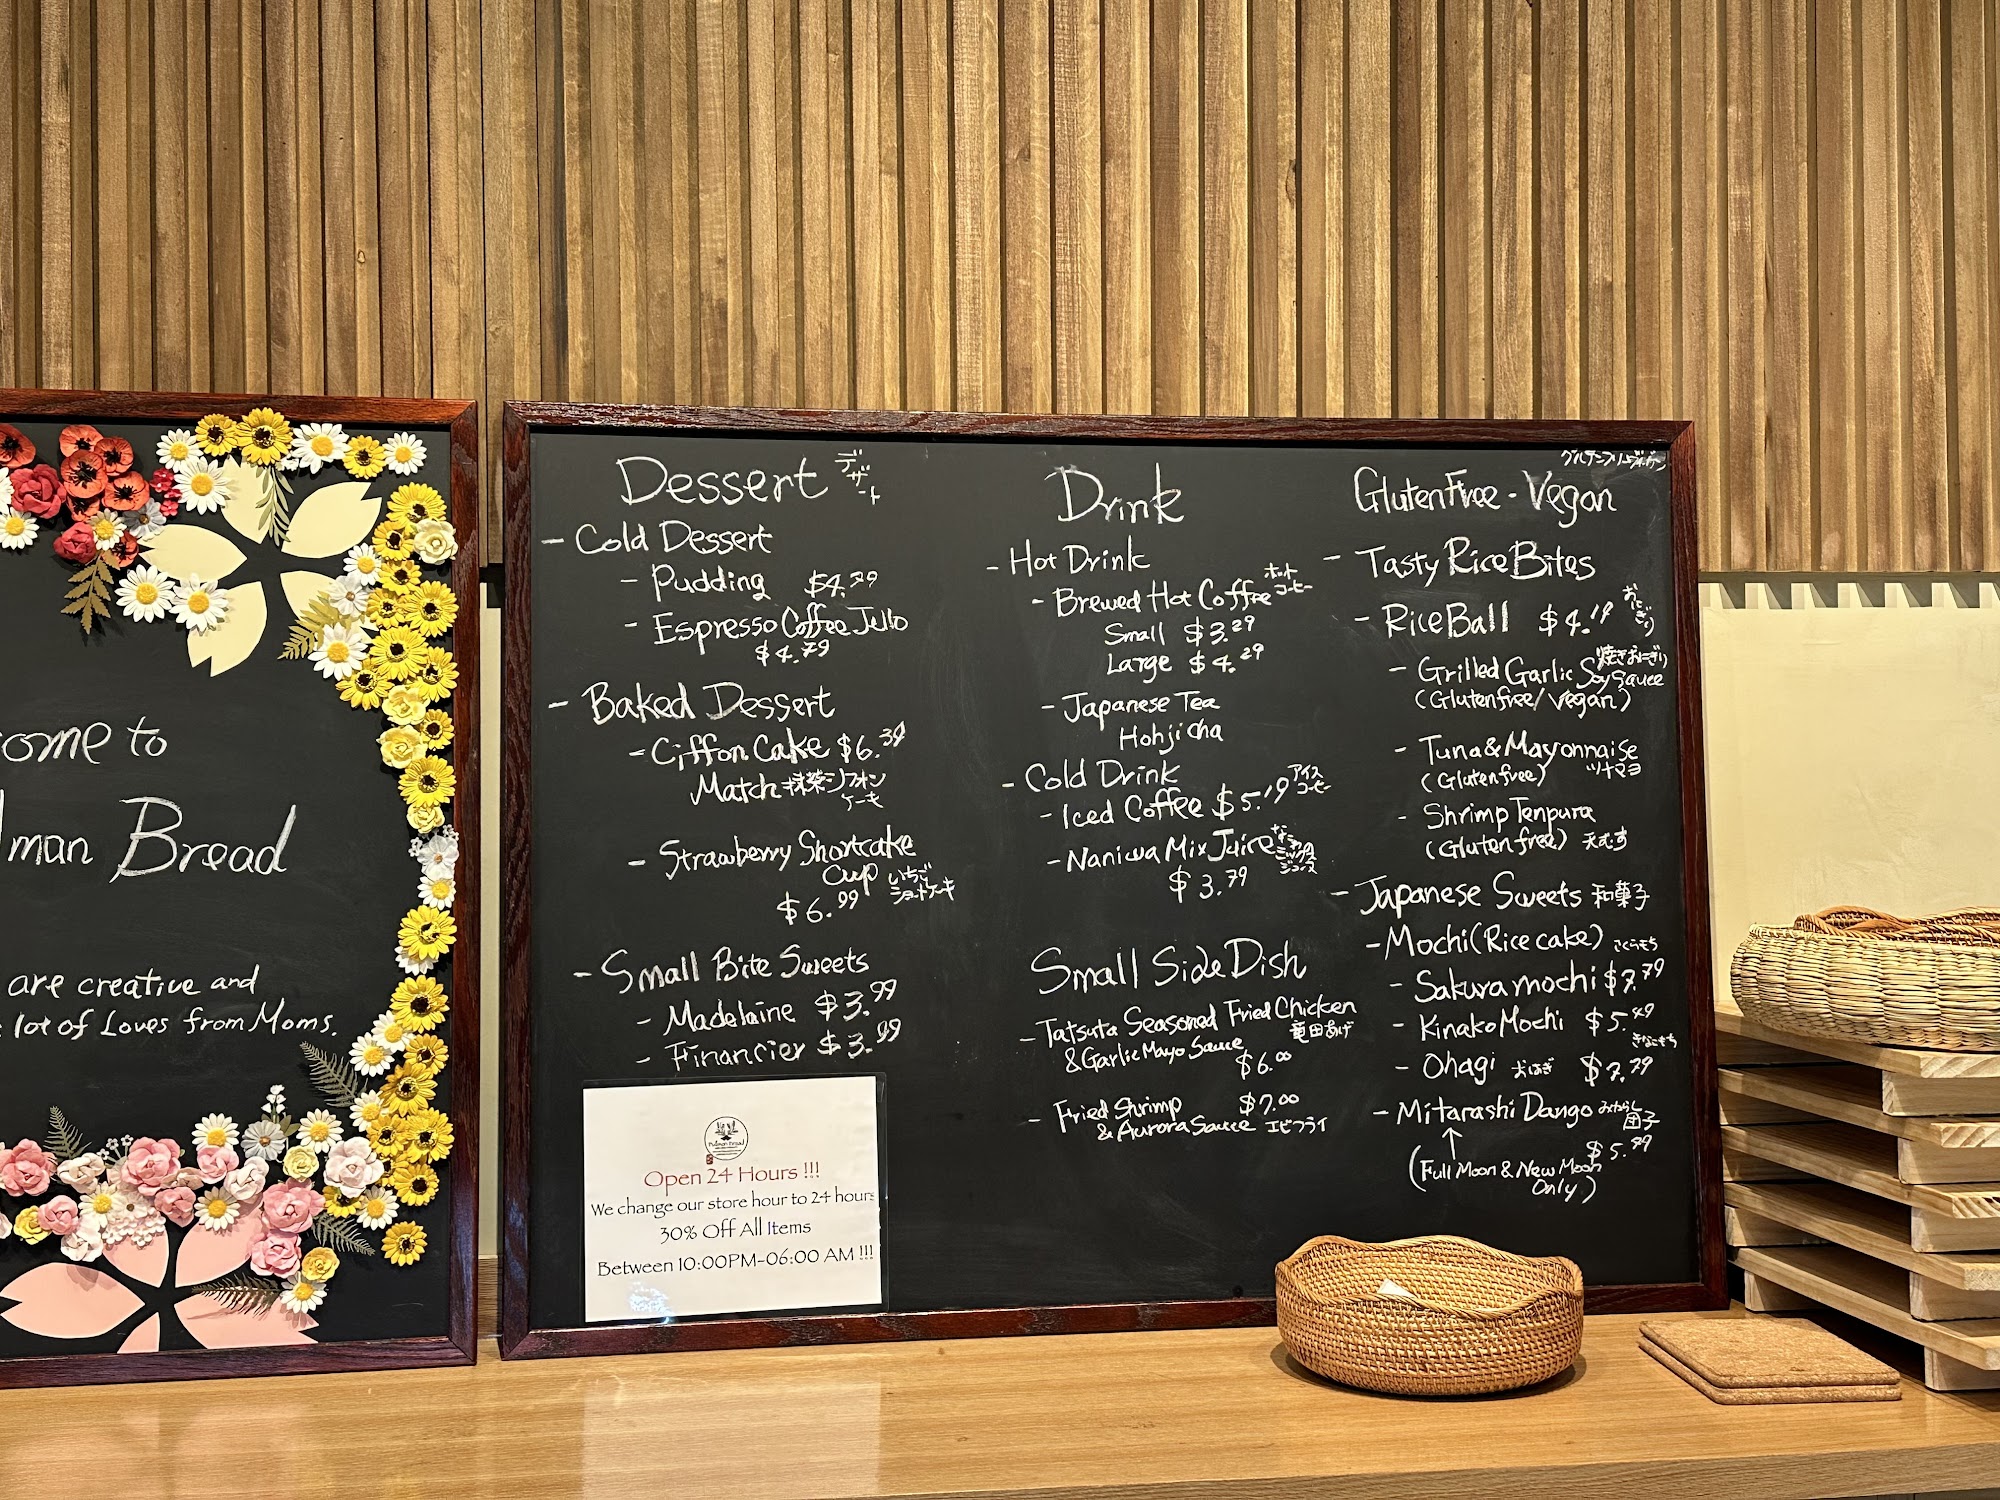 ome to
lman Bread
are creative and
lot of Loves from Moms.
Dessert デザート
- Cold Dessert
- Pudding $4.79
- Espresso Coffee Jello
$4.79
- Baked Dessert
- Ciffon Cake $6.39
Match 抹茶シフォン
ケーキ
- Strawberry Shortcake
Cup いちご
ショートケーキ
$6.99
- Small Bite Sweets
- Madelaine $3.99
- Financier $3.99
Pullman Bread
Open 24 Hours !!!
We change our store hour to 24 hours
30% Off All Items
Between 10:00PM-06:00 AM !!!
Drink
- Hot Drink
- Brewed Hot Coffee ホットコーヒー
Small $3.29
Large $4.29
- Japanese Tea
Hohjicha
- Cold Drink
- Iced Coffee $5.19 アイスコーヒー
- Naniwa Mix Juice なにわミックスジュース
$3.79
Small Side Dish
- Tatsuta Seasoned Fried Chicken
& Garlic Mayo Sauce 竜田あげ
$6.00
- Fried Shrimp $7.00
& Aurora Sauce エビフライ
グルテンフリーヴィーガン
Gluten Free - Vegan
- Tasty Rice Bites
- Rice Ball $4.19 おにぎり
- Grilled Garlic Soy Sauce 焼きおにぎり
(Glutenfree/Vegan)
- Tuna & Mayonnaise
(Glutenfree) ツナマヨ
- Shrimp Tenpura
(Glutenfree) 天むす
- Japanese Sweets 和菓子
- Mochi (Rice cake) さくらもち
- Sakura mochi $7.79
- Kinako Mochi $5.49
きなこもち
- Ohagi おはぎ $7.79
- Mitarashi Dango みたらし
団子
$5.49
(Full Moon & New Moon
Only)